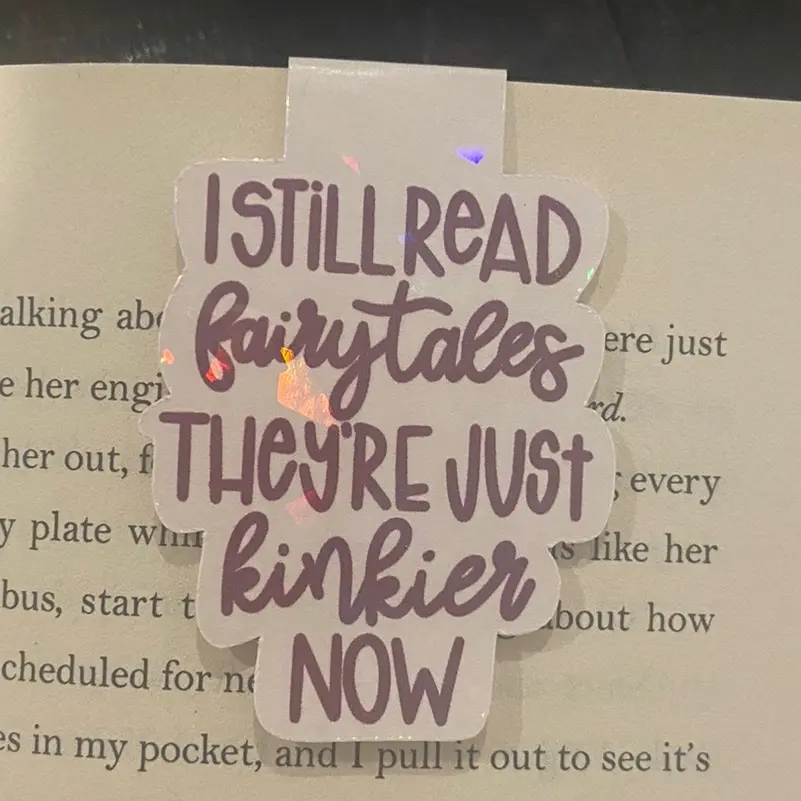 I STILL READ
fairytales
THEY'RE JUST
kinkier
NOW
alking ere just
e her
her out, every
y plate like her
bus, start about how
cheduled for
es in my pocket, and I pull it out to see it's